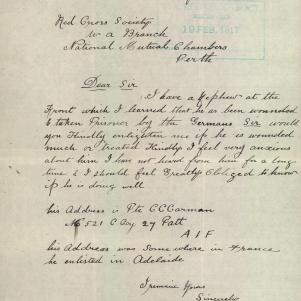 19 FEB. 1917
Red Cross Society
W A Branch
National Mutual Chambers
Perth
Dear Sir
I have a Nephew at the
Front which I learned that he as been wounded
& taken Prisoner by the Germans Sir would
you Kindly enlighten me if he is wounded
much or treated Kindly I feel very anxious
about him I has not heard from him for a long
time & I should feel Greatly Obliged to know
if he is doing well
his Address is Pte C C Carman
No 521 C Coy 27 Batt
A I F
his Address was Some where in France
he enlisted in Adelaide
I remain Yours
Sincerely